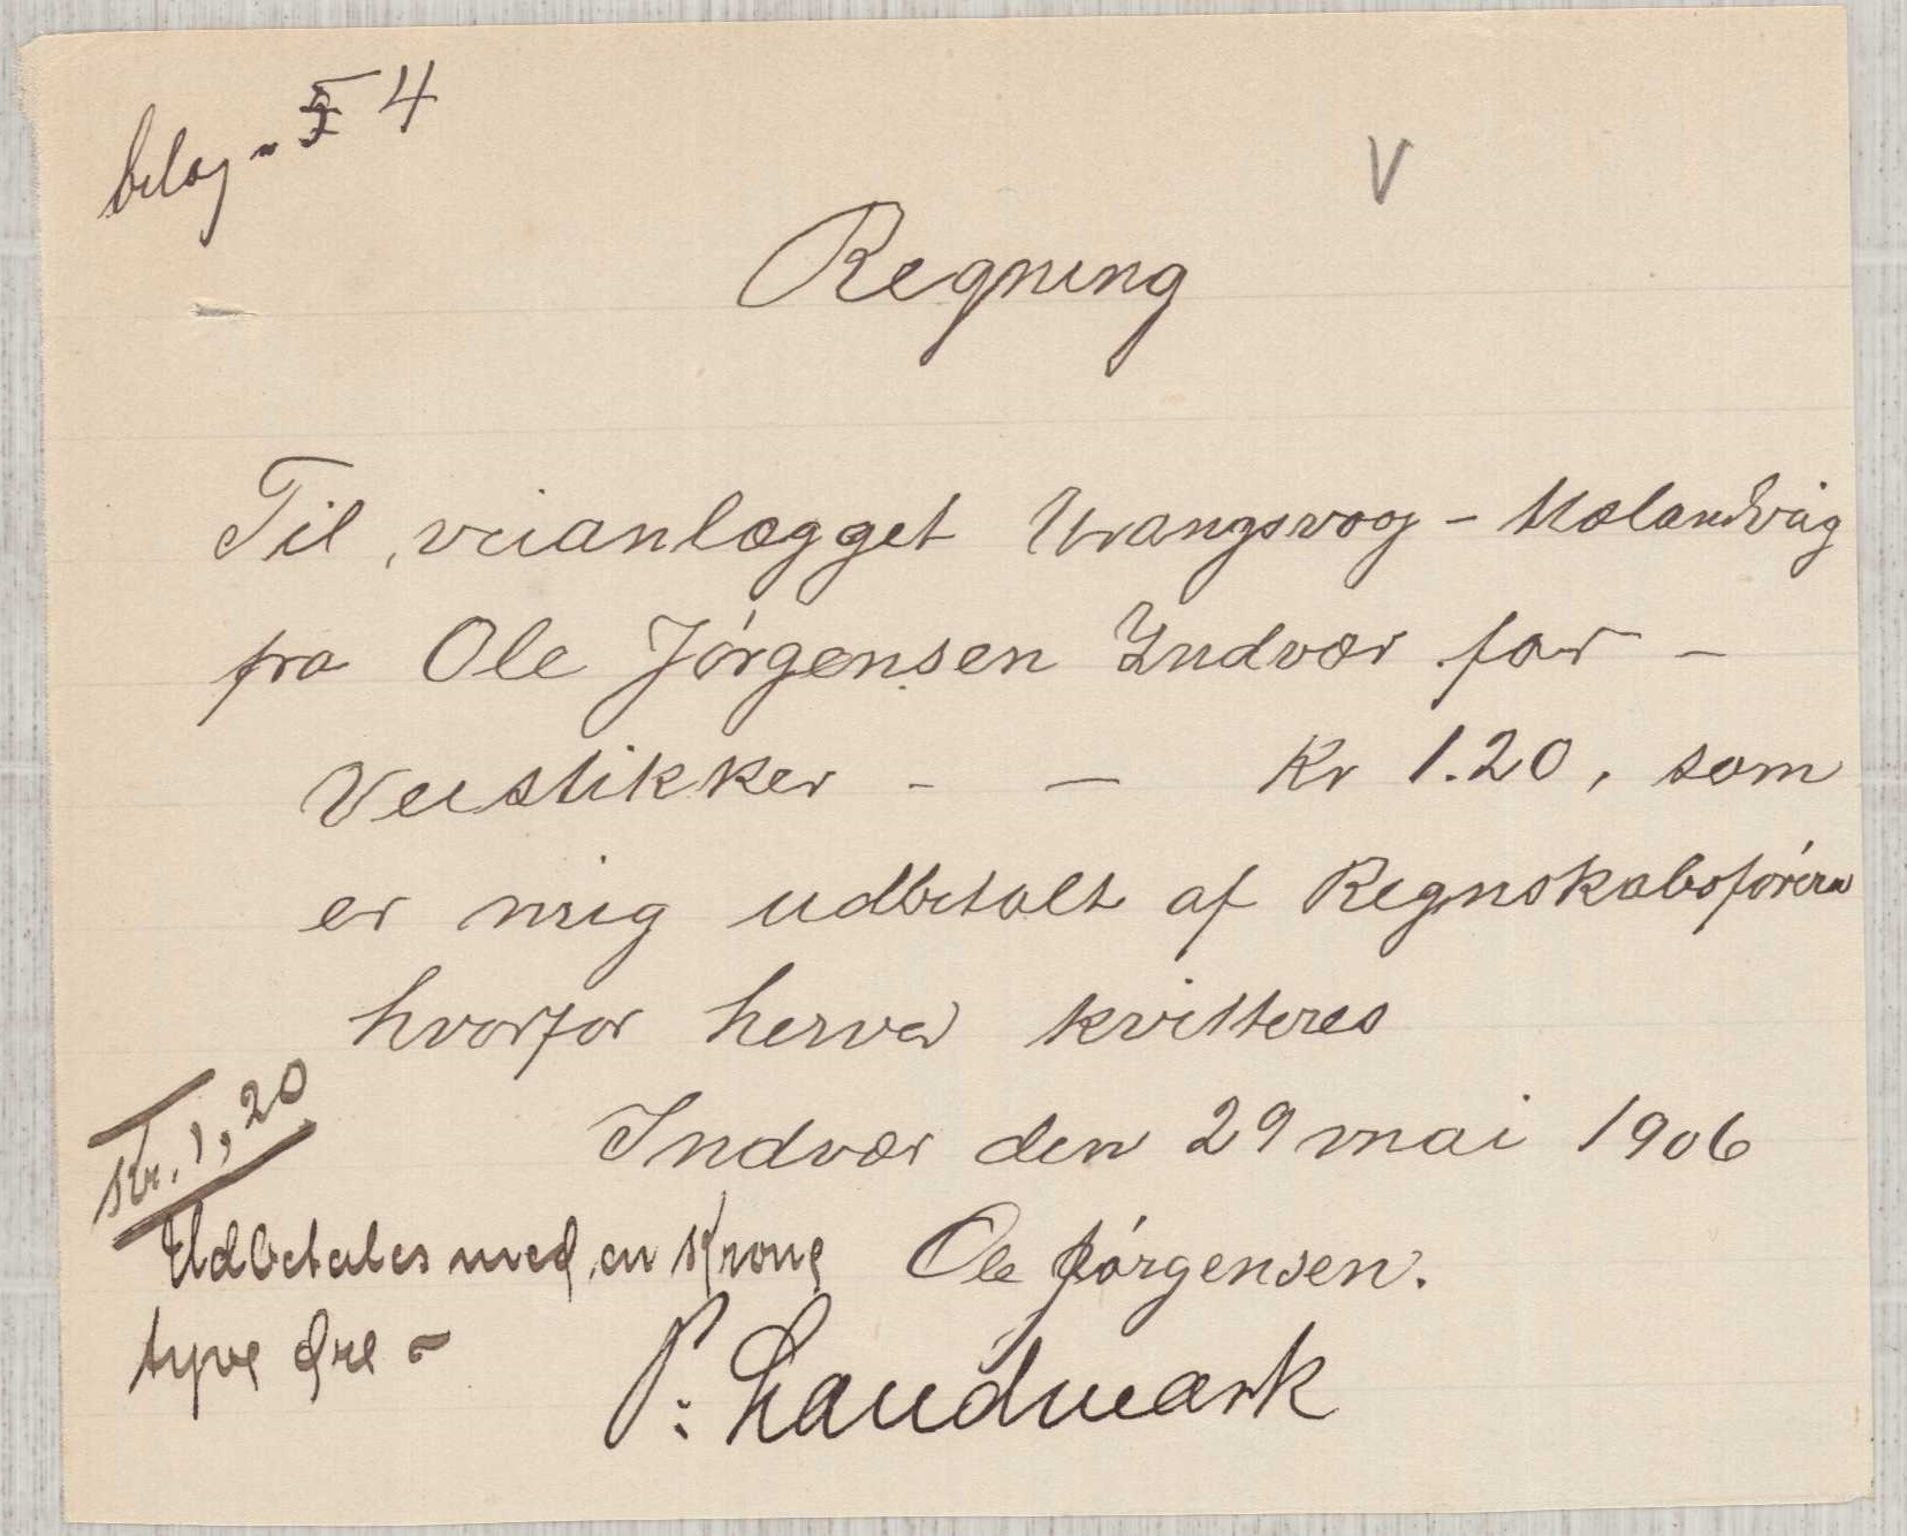 bilag - 4
V
Regning
Til veianlægget Vrangsvaag - Mælandsvåg
fra Ole Jørgensen Indvær for -
Veistikker - - Kr 1.20, som
er mig udbetalt af Regnskabsføreren
hvorfor herved kvitteres
Indvær den 29 mai 1906
Kr. 1,20
Udbetales med en Krone Ole Jørgensen.
tyve Øre -
P: Landmark